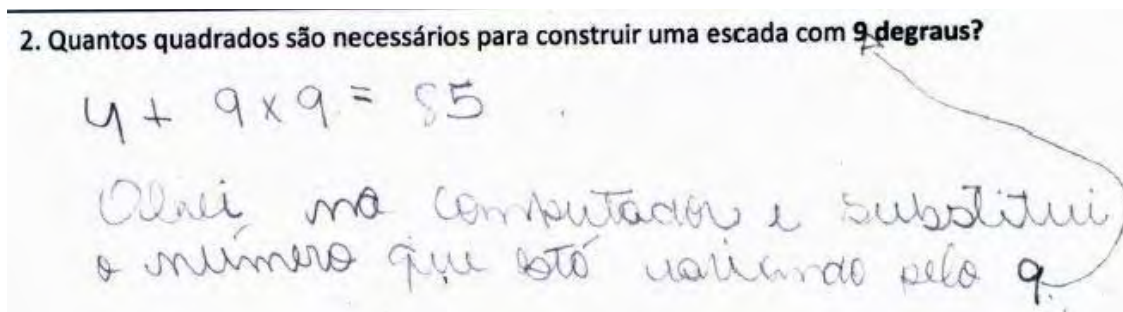 2. Quantos quadrados são necessários para construir uma escada com 9 degraus?
4 + 9 x 9 = 85
Olhei no computador e substitui
o número que está variando pelo 9.